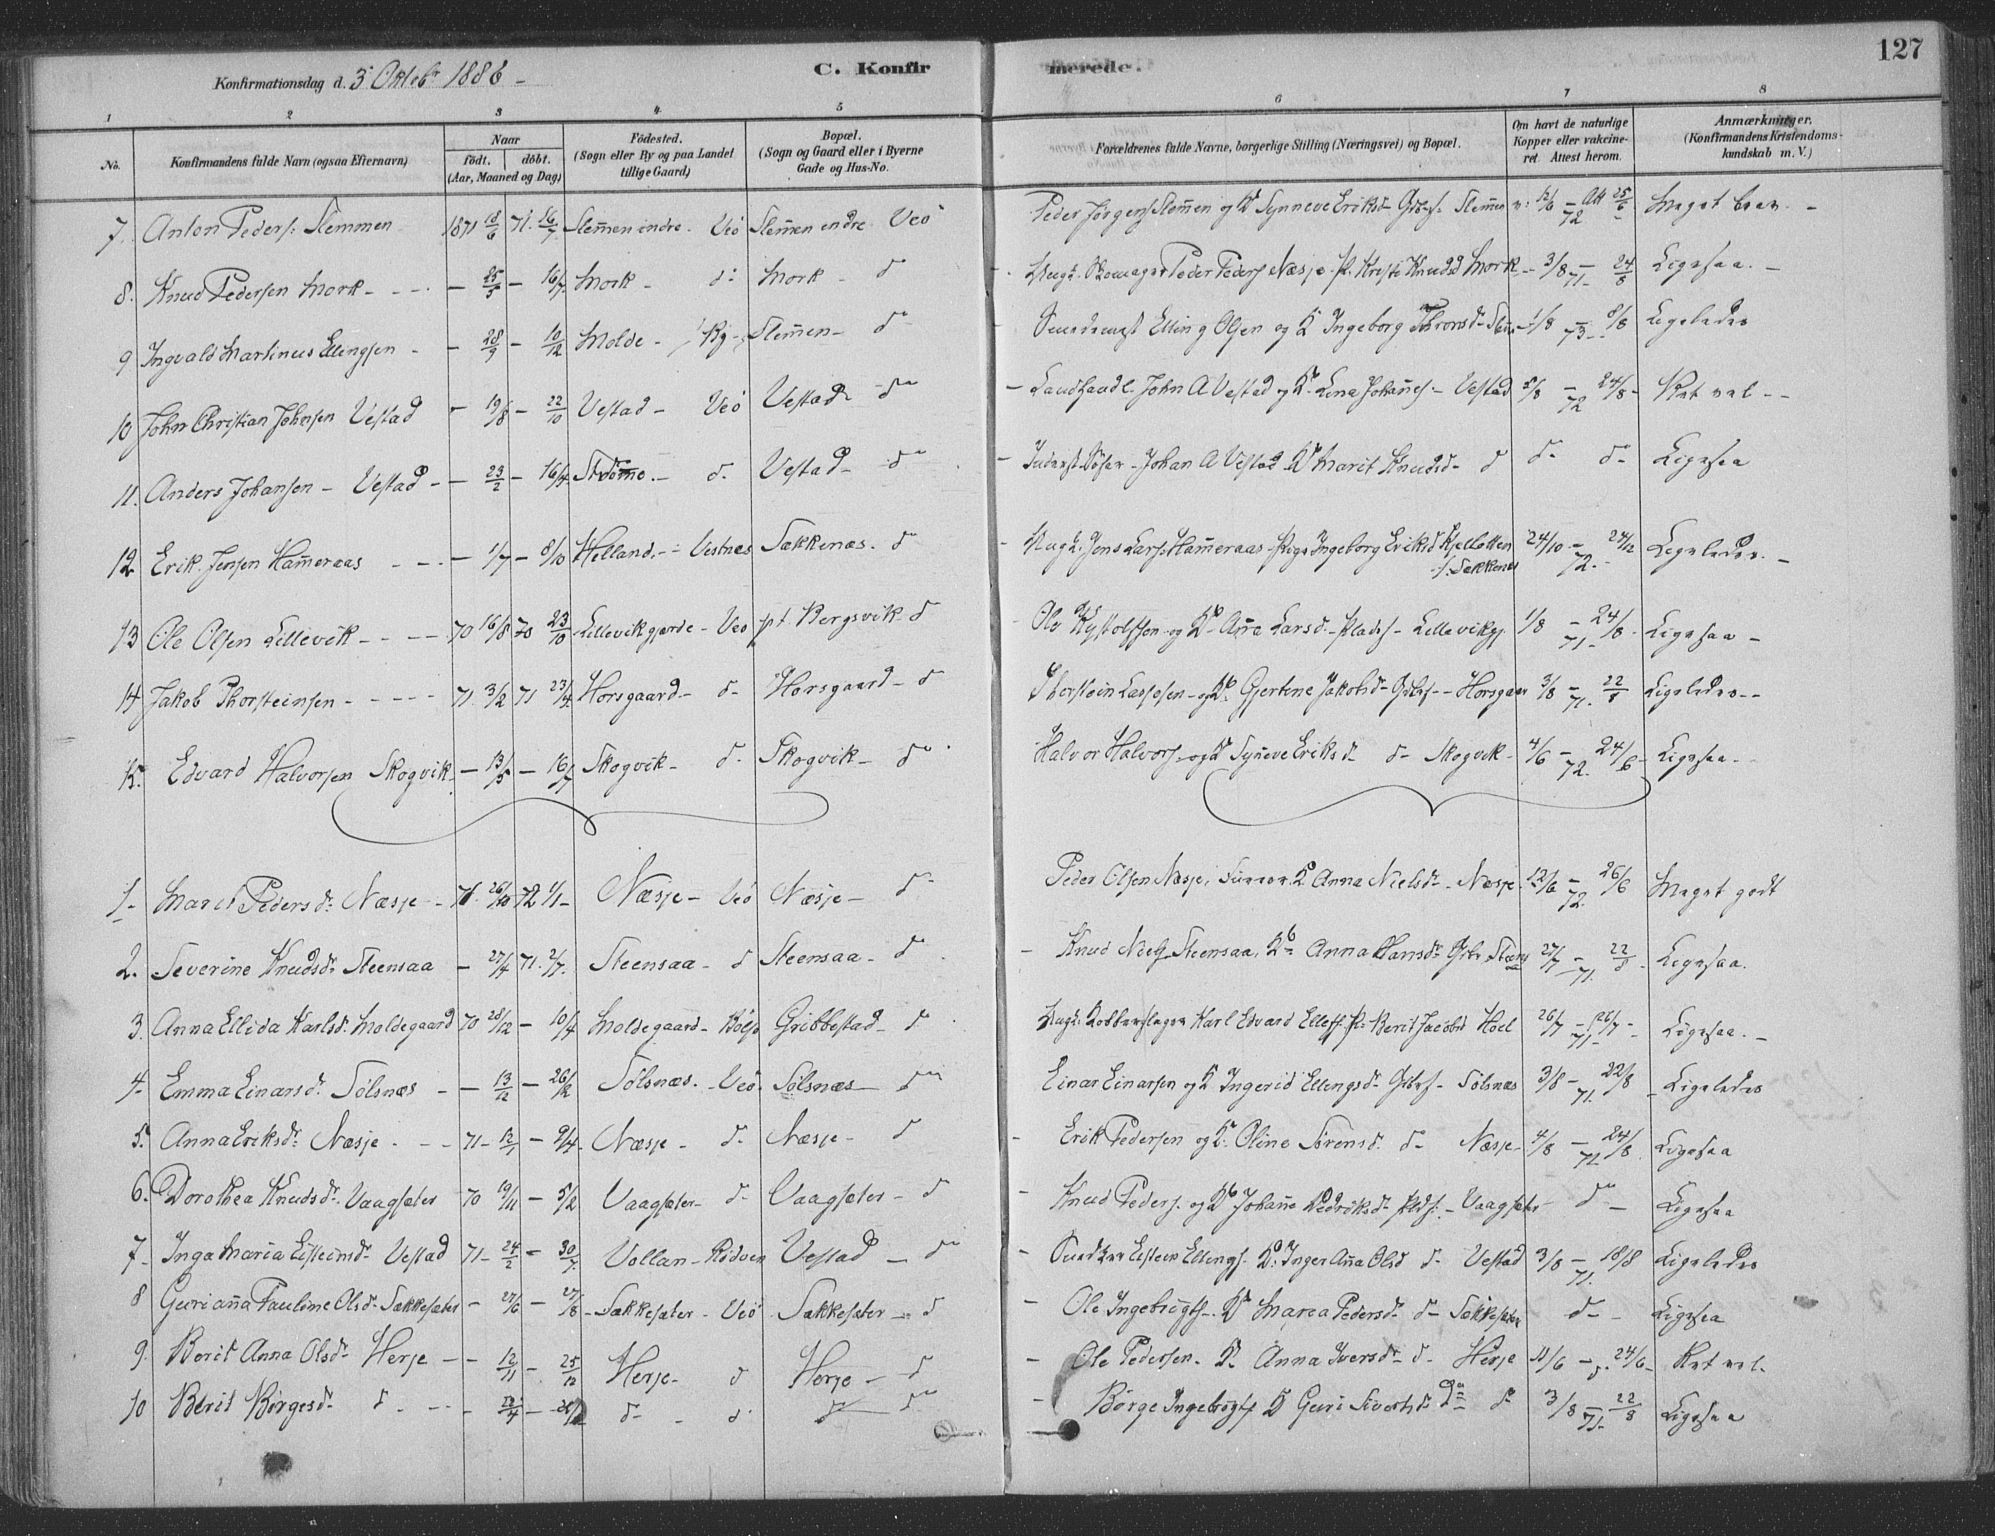 127
Konfirmationsdag d. 3 Oktobr 1886 -
C. Konfirmerede.
1 2 3 4 5 6 7 8
No. Konfirmandens fulde Navn (ogsaa Efternavn) Naar født. døbt. (Aar, Maaned og Dag) Fødested. (Sogn eller By og paa Landet tillige Gaard) Bopæl. (Sogn og Gaard eller i Byerne Gade og Hus-No. Forældrenes fulde Navne, borgerlige Stilling (Næringsvei) og Bopæl. Om havt de naturlige Kopper eller vakcineret. Attest herom. Anmærkninger. (Konfirmandens Kristendomskundskab m. V.)
7. Anton Peders. Slemmen 1871 18/6 71. 16/7 Slem̄en indre - Veö Slem̄en indre Veö Peder Jörgens Slem̄en og Synneve Eriksd. Slem̄en v. 12/6 - 72 Att 25/6 Meget bra. -
8. Knud Pedersen Mork - - 25/5 - 16/7 Mork - do Mork - do Peder Peders Næsje P. Kristi Knudsd Mork - 3/8 - 71 - 24/8 Ligesaa. -
9 Ingvald Martinus Ellingsen - - 28/9 - 10/12 Molde - By - Slem̄en - do Elling Olsen og Ingeborg Thronsd - 1/8 - 73 - 8/8 Ligeledes
10 John Christian Johnsen Vestad - 19/8 - 22/10 Vestad - Veö Vestad - do - Landhandl. John A Vestad og Lina Johan̄es - Vestad 5/8 - 72 24/8 - Ret vel - -
11. Anders Johansen - Vestad - - 23/2 - 16/4 - do. Vestad - do - Johan A Vestad Marit Knudsd - do do - do - Ligesaa
12 Erik Jensen Ham̄eraas - - - 1/7 - 8/10 Helland - - Vestnes Sækkenæs. do - Jens Lars. Ham̄eraas - Pige Ingeborg Eriksd 24/10 - 72. - 24/12 Ligeledes. - Sækkenæs
13 Ole Olsen Lillevik - - - 70 16/8 70 23/10 Lillevikgjerde - Veö pt Bergsvik do - Ole og An̄e Larsd. - Plads - Lillevikgj. 1/8 - 71 - 24/8 - Ligesaa -
14 Jakob Thorsteinsen - - - - 71. 3/2 71 23/4 Horsgaard - do - Horsgaard - do Thorstein Lassesen - og Gjertine Jakobsd - - Horsgaar 3/8 - 71. 22/8 Ligeledes - -
15. Edvard Halvorsen Skogvik. - 13/5 - 16/7 Skogvik - do - Skogvik - do Halvor Halvors. og Syneve Eriksd do - Skogvik - 4/6 - 72. 24/6 - Ligesaa. -
1. Marit Pedersdr Næsje - 71. 26/10 72 1/1 - Næsje - Veö Næsje - do Peder Olsen Næsje, Anna Nielsdr. Næsje 12/6 - 72. 26/6 Meget godt
2. Severine Knudsdr. Steensaa - 27/4 71. 2/7. Steensaa - do Steensaa. - do - Knud Niels Steensaa, Anna Hansdr 27/7 - 71. 22/8 - Ligesaa.
3. Anna Ellida Karlsd. Moldegaard 70 28/12 - 10/4 Moldegaard - Bolsö Gribbestad - do Kobberslager Karl Edvard Ellefs. P. Berit Jacobsd Hoel 26/7 - 71 - 26/7 - Ligesaa. -
4. Emma Einarsdr. Sölsnæs - - 13/12 - 26/12 Sölsnæs. - Veö Sölsnæs - do Einar Einarsen og Ingerid Ellingsdr. - Sölsnæs 3/8 - 71. 22/8 Ligeledes
5. Anna Eriksdr. Næsje - - - 71 - 12/1 - 9/4 Næsje - do - Næsje - do - Erik Pedersen og Oline Sörensdr. do - Næsje - 4/8 - 71 24/8 Ligesaa
6. Dorothea Knudsdr. Vaagsæter 70 19/11 - 5/2 Vaagsæter - do - Vaagsæter - do - Knud Peders. og Johan̄e Pedriksdr. Plds. - Vaagsæter - do - Ligesaa
7 - Inga Maria Eisteinsdr. Vestad 71 - 24/2 - 30/7 Vollan - Rödven Vestad - do - Eistein Ellings. Inger An̄a Olsd do Vestad 3/8 - 71. 18/8 Ligeledes
8 Gurian̄a Pauline Olsdr. Sækkesæter - 27/6 - 27/8 - Sækkesæter - Veö Sækkesæter - do - Ole Ingebrigts. Marea Pedersdr. do - Sækkesæter do - Ligesaa
9. Berit Anna Olsdr. Herje - - 12/11 - 25/12 Herje - do Herje - do - Ole Pedersen. Anna Iversdr do - Herje 11/6 - 24/6 - Ret vel.
10 Berit Börgesdr. do - - do - do do do - Börge Ingebrigts. Guri Sivertsd do do 3/8 - 71 - 22/8 Ligesaa